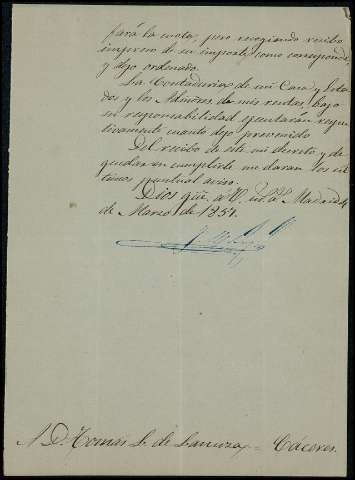 pará la cuota; pero recogiendo recibo
impreso de su importe como corresponde,
y dejo ordenado.
La Contaduría de mi Casa y Esta-
dos y los Admores de mis rentas, bajo
su responsabilidad ejecutarán respec-
tivamente cuanto dejo prevenido.
Del recibo de este mi decreto, y de
quedar en cumplirlo me darán los úl-
timos puntual aviso.
Dios güe. á V. ms. as. Madrid 4
de Marzo de 1857.
A D. Tomás L. de Lanuza = Cáceres.